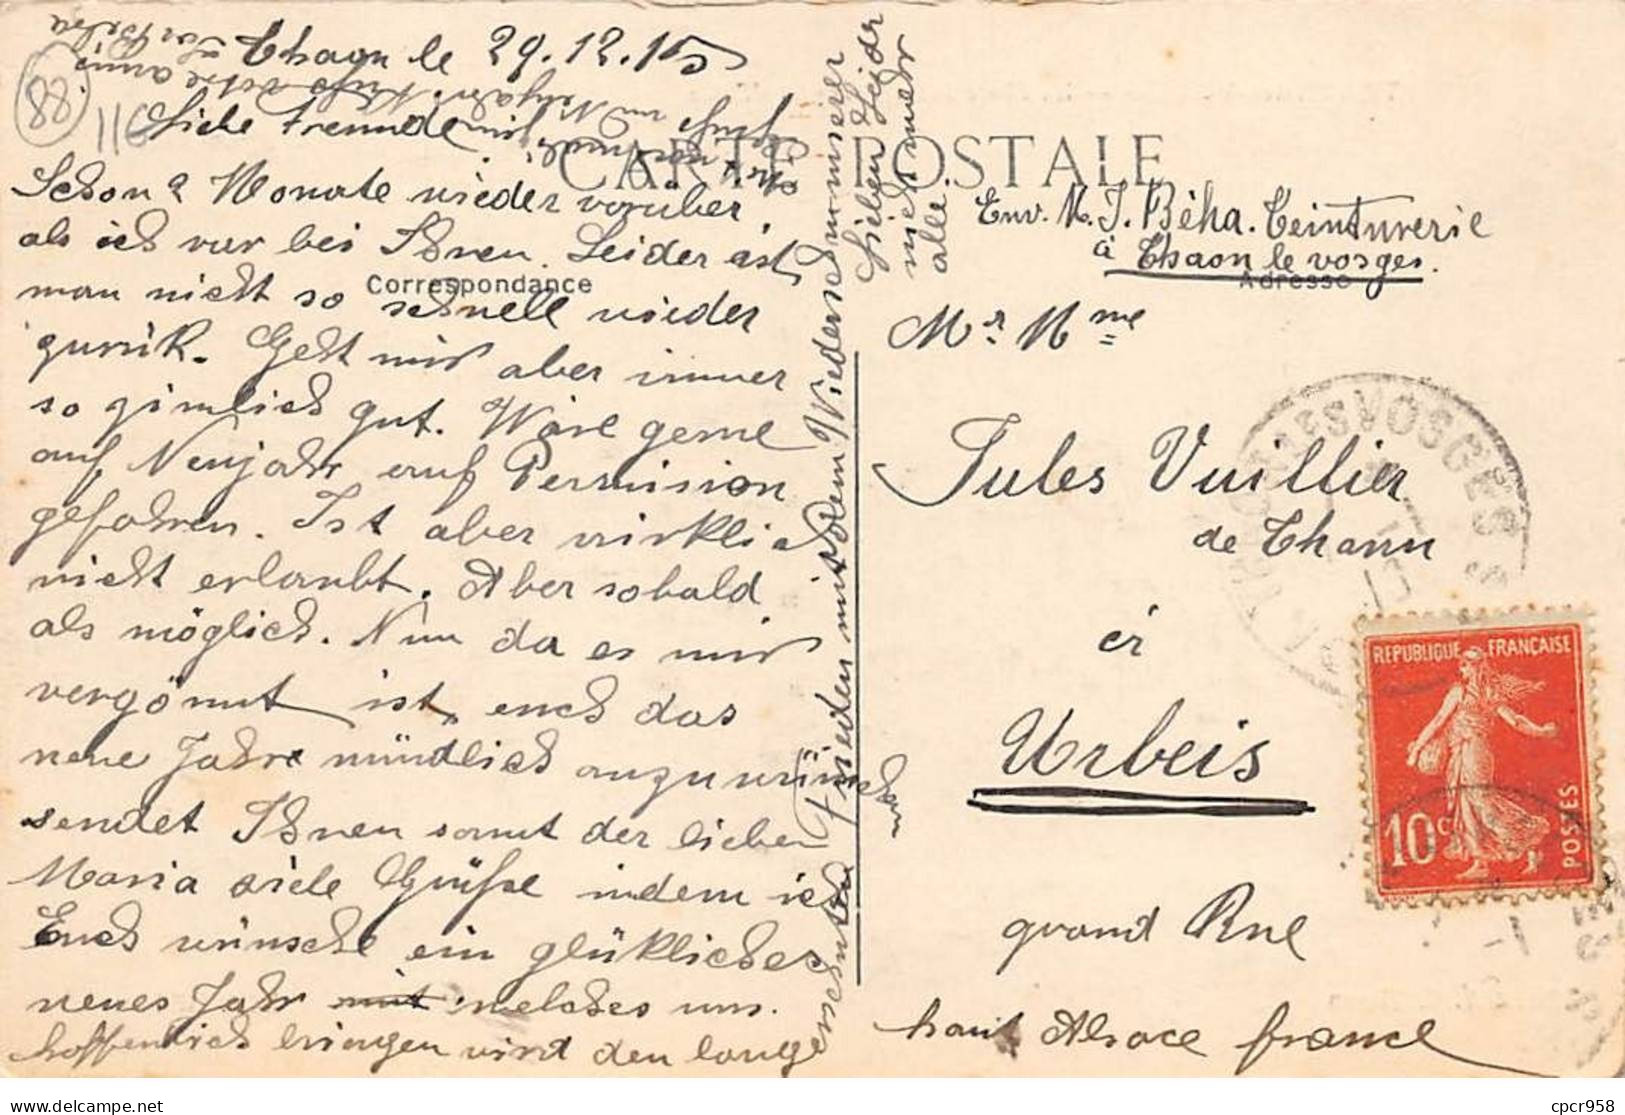 88
116
Thaon le 29.12.15
Liebe Freunde
Schon 2 Monate wieder vorüber
als ich war bei Ihnen. Leider ist
man nicht so schnell wieder
zurük. Geht mir aber immer
so zimlich gut. Wäre gerne
auf Neujahr auf Permision
gefahren. Ist aber wirklich
nicht erlaubt. Aber sobald
als möglich. Nun da es mir
vergönnt ist, euch das
neue Jahre mündlich anzuwünschen
sendet Ihnen samt der lieben
Maria viele Grüße indem ich
Euch wünsche ein glükliches
neues Jahr mit welches uns
hoffentlich bringen wird den lange
ersehnten Frieden mit dem Wiedersehn unserer
Lieben Leider
nicht mehr
alle.
CARTE POSTALE
Correspondance
Adresse
Env. M. J. Béha. Teinturerie
à Thaon le vosges.
Mr Mme
Jules Vuillier
de Thann
à
Urbeis
grand Rue
haut Alsace france
REPUBLIQUE FRANÇAISE
10c
POSTES
delcampe.net
cpcr958